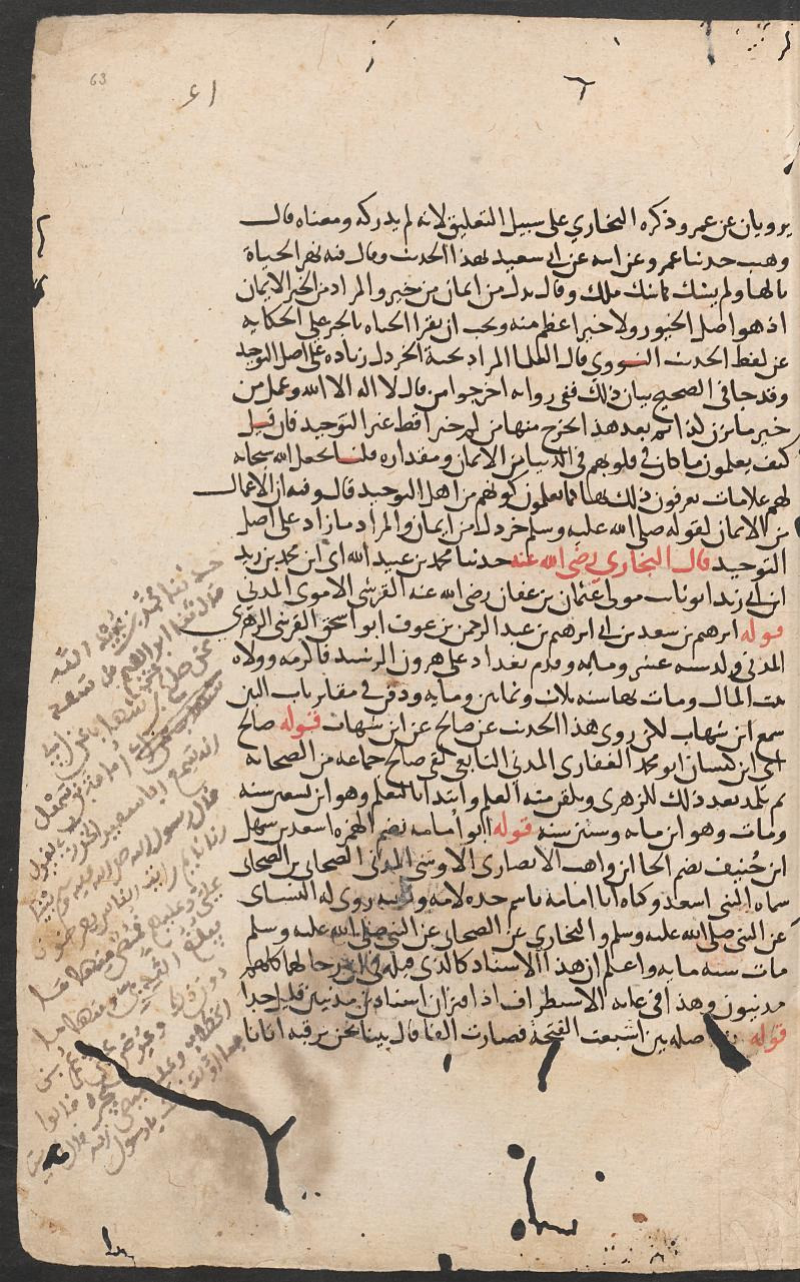 يرويان عن عمرو وذكره البخاري على سبيل التعليق لانه لم يدركه ومعناه قال
وهب حدثنا عمرو عن ابيه عن ابي سعيد بهذا الحديث وقال فيه نهر الحياة
بالها ولم يشك كما شك ملك وقال بدل من ايمان من خير والمراد من الخير الايمان
اذ هو اصل الخيور ولا خير اعظم منه ويجب ان يقرا الحياه بالجر على الحكايه
عن لفظ الحديث النووي قال العلما المراد بحبة الخردل زياده على اصل التوحيد
وقد جا في الصحيح بيان ذلك ففي روايه اخرجوا من قال لا اله الا الله وعمل من
خير ما يزن كذا ثم بعد هذا يخرج منها من لم يعمل خيرا قط غير التوحيد فان قيل
كيف يعلمون ما كان في قلوبهم في الدنيا من الايمان ومقداره قلنا يجعل الله سبحانه
لهم علامات يعرفون ذلك بها كما يعلمون كونهم من اهل التوحيد قال وفيه ان الاعمال
من الايمان لقوله صلى الله عليه وسلم خردل من ايمان والمراد ما زاد على اصل
التوحيد قال البخاري رضي الله عنه حدثنا محمد بن عبيد الله اي ابن محمد بن زيد
ابن ابي زيد ابو ثابت مولى عثمان بن عفان رضي الله عنه القرشي الاموي المدني
قوله ابرهيم بن سعد بن ابرهيم بن عبد الرحمن بن عوف ابو اسحق القرشي الزهري
المدني ولد سنه عشر ومايه وقدم بغداد على هرون الرشيد فاكرمه وولاه
بيت المال ومات بها سنه ثلاث وثمانين ومايه ودفن في مقابر باب التبن
سمع ابن شهاب لكن روى هذا الحديث عن صالح عن ابن شهاب قوله صالح
اي ابن كيسان ابو محمد الغفاري المدني التابعي لقي صالح جماعه من الصحابه
ثم تلمذ بعد ذلك للزهري وتلقن منه العلم وابتدا بالتعلم وهو ابن تسعين سنه
ومات وهو ابن مايه وستين سنه قوله ابو امامه بضم الهمزه اسعد بن سهل
ابن حُنيف بضم الحا ابن واهب الانصاري الاوسي المدني الصحابي بن الصحابي
سماه النبي اسعد وكناه ابا امامه باسم جده لامه وكنيته روى له النساى
عن النبي صلى الله عليه وسلم والبخاري عن الصحابي عن النبي صلى الله عليه وسلم
مات سنه مايه واعلم ان هذا الاسناد كالذي قبله في ان رجالهما كلهم
مدنيون وهذا في غايه الاستطراف اذ اقتران اسنادين مدنيين قليل جدا
قوله بينا صله بين اشبعت الفتحة فصارت الفا قال بينا نحن نرقبه اتانا
حدثنا محمد بن عبيد الله
قال ثنا ابراهيم بن سعد
عن صالح عن ابن شهاب عن ابي
امامة بن سهل
انه سمع ابا سعيد الخدري يقول
قال رسول الله صلى الله عليه وسلم بينا
انا نايم رايت الناس يعرضون
علي وعليهم قمص منها ما
يبلغ الثدي ومنها ما
دون ذلك وعرض علي عمر بن
الخطاب وعليه قميص يجره قالوا
فما اولت ذلك يا رسول
الله قال الدين
63
٦١